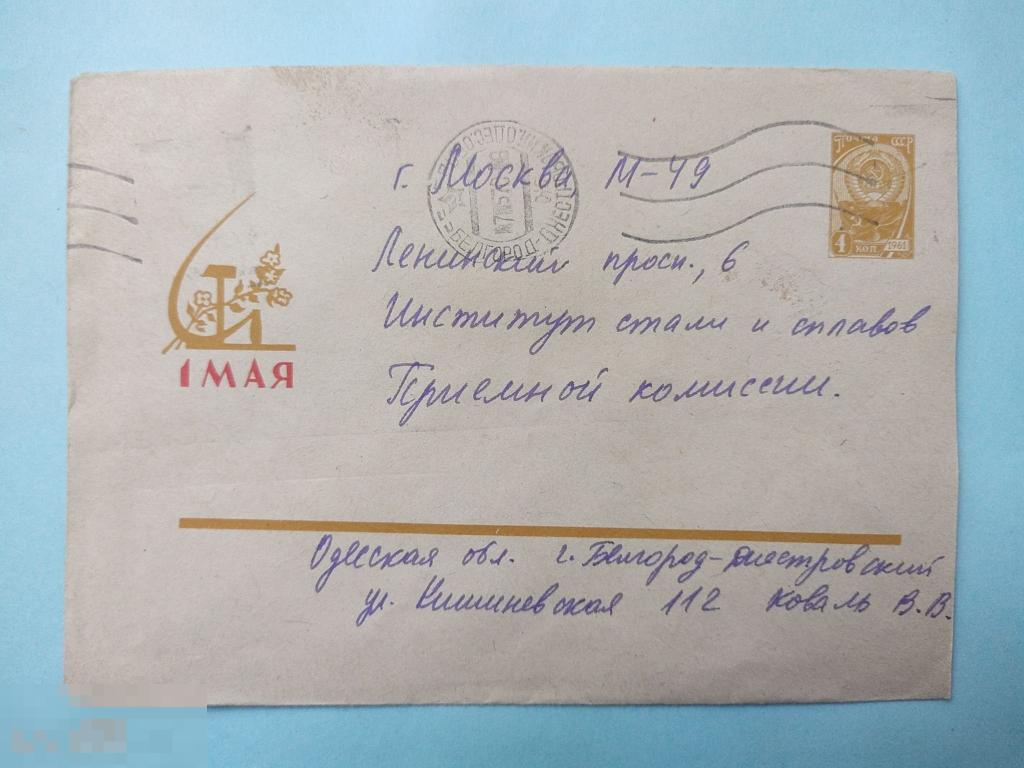 г. Москва М-49
Ленинский просп., 6
Институт стали и сплавов
Приемной комиссии.
ПОЧТА СССР
4 КОП 1961
БЕЛГОРОД-ДНЕСТРОВСКИЙ
1 МАЯ
Одесская обл. г. Белгород-Днестровский
ул. Кишиневская 112 Коваль В.В.